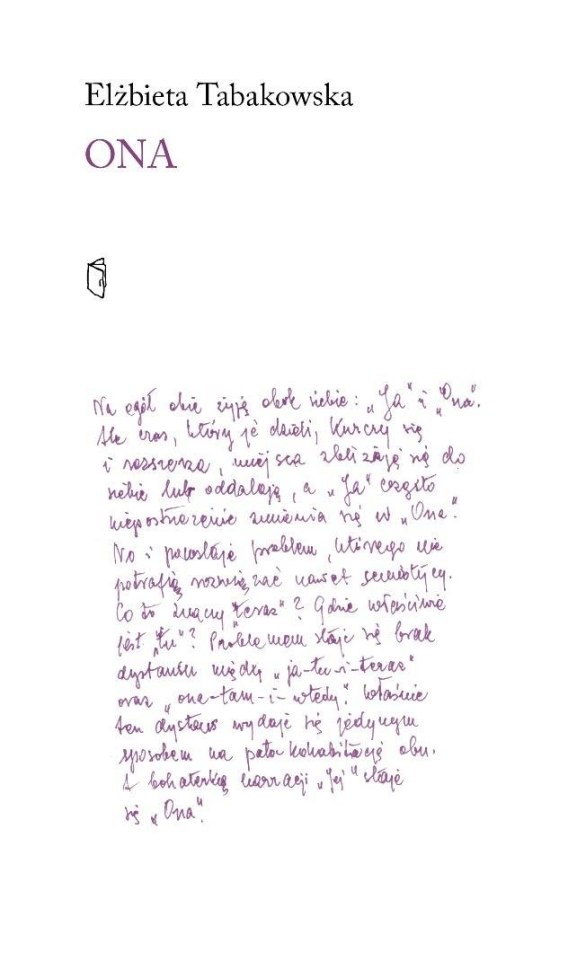 Elżbieta Tabakowska
ONA
Na ogół obie żyją obok siebie: „Ja" i „Ona".
Ale czas, który je dzieli, kurczy się
i rozszerza, miejsca zbliżają się do
siebie lub oddalają, a „Ja" często
niepostrzeżenie zmienia się w „Ona".
No i powstaje problem, którego nie
potrafią rozwiązać nawet semiotycy.
Co to znaczy „teraz"? Gdzie właściwie
jest „tu"? Problemem staje się brak
dystansu między „ja-tu-i-teraz"
oraz „ona-tam-i-wtedy". Właśnie
ten dystans wydaje się jedynym
sposobem na kohabitację obu.
A bohaterką narracji „Jej" staje
się „Ona".